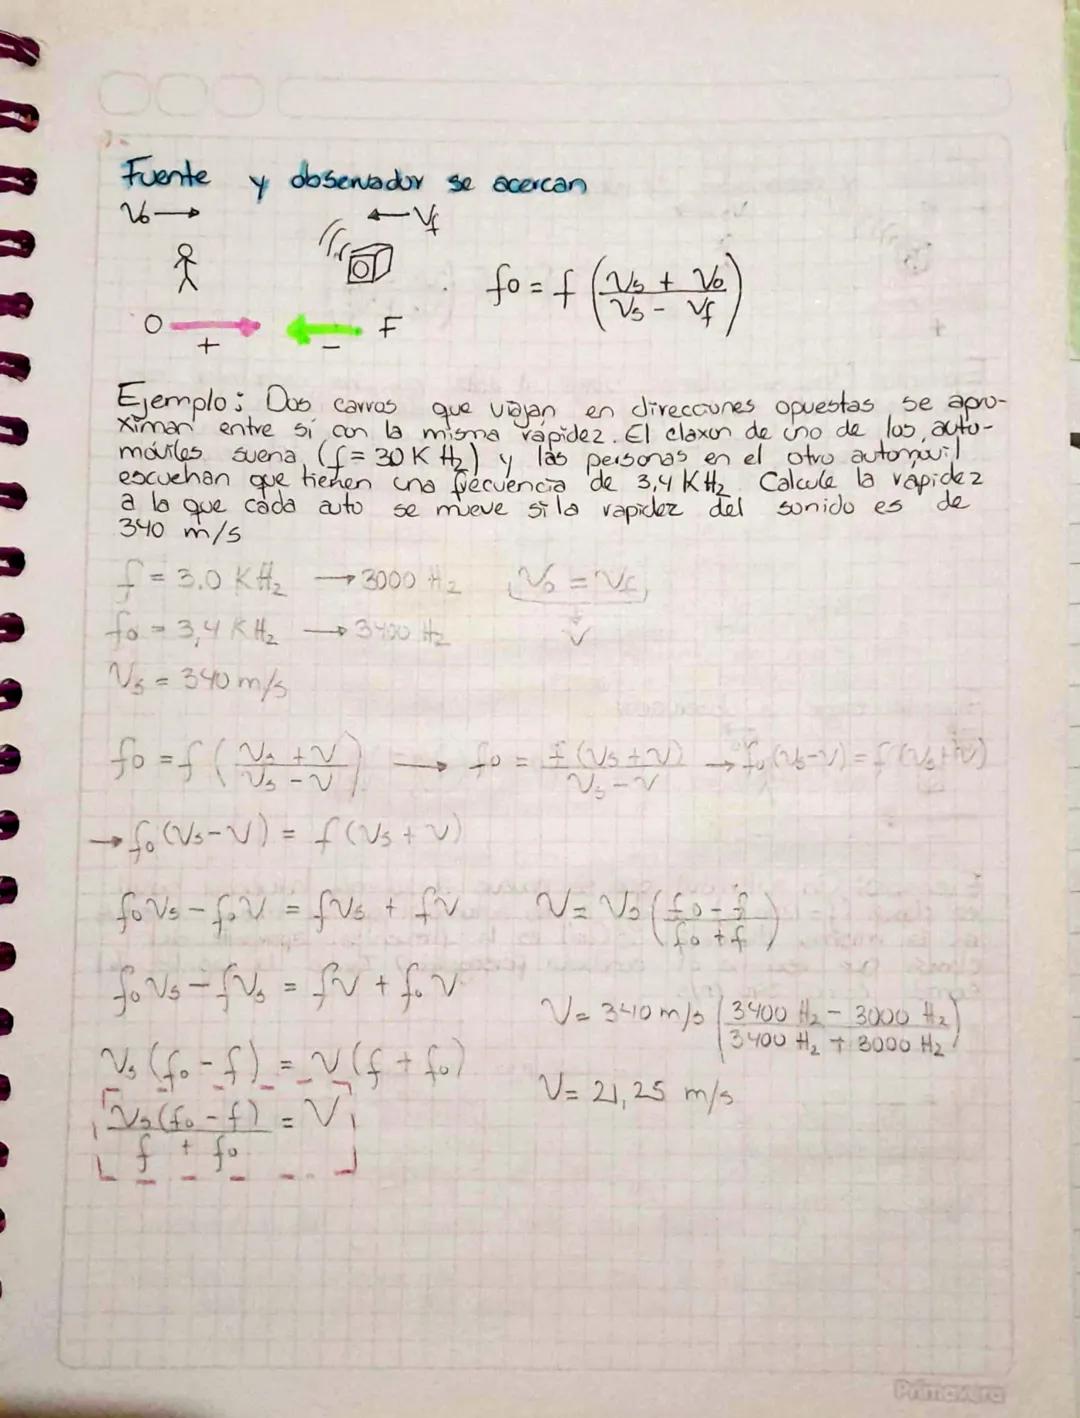 Fuente y observador se acercan
Vo → ← Vf
fo = f (Vs + Vo / Vs - Vf)
O → ← F
+ -
Ejemplo: Dos carros que viajan en direcciones opuestas se apro-
ximan entre sí con la misma rápidez. El claxon de uno de los auto-
móviles suena (f = 30 K Hz) y las personas en el otro automovil
escuchan que tienen una frecuencia de 3,4 KHz. Calcule la rapidez
a la que cada auto se mueve si la rapidez del sonido es de
340 m/s
f = 3.0 KHz → 3000 Hz Vo = Vf
fo = 3,4 KHz → 3400 Hz V
Vs = 340 m/s
fo = f (Vs + V / Vs - V) → fo = f (Vs + V) / Vs - V → fo (Vs - V) = f (Vs + V)
→ fo (Vs - V) = f (Vs + V)
foVs - foV = fVs + fV
foVs - fVs = fV + foV
Vs (fo - f) = V (f + fo)
Vs (fo - f) / f + fo = V
V = Vs (fo - f / fo + f)
V = 340 m/s (3400 Hz - 3000 Hz / 3400 Hz + 3000 Hz)
V = 21,25 m/s
Primavera